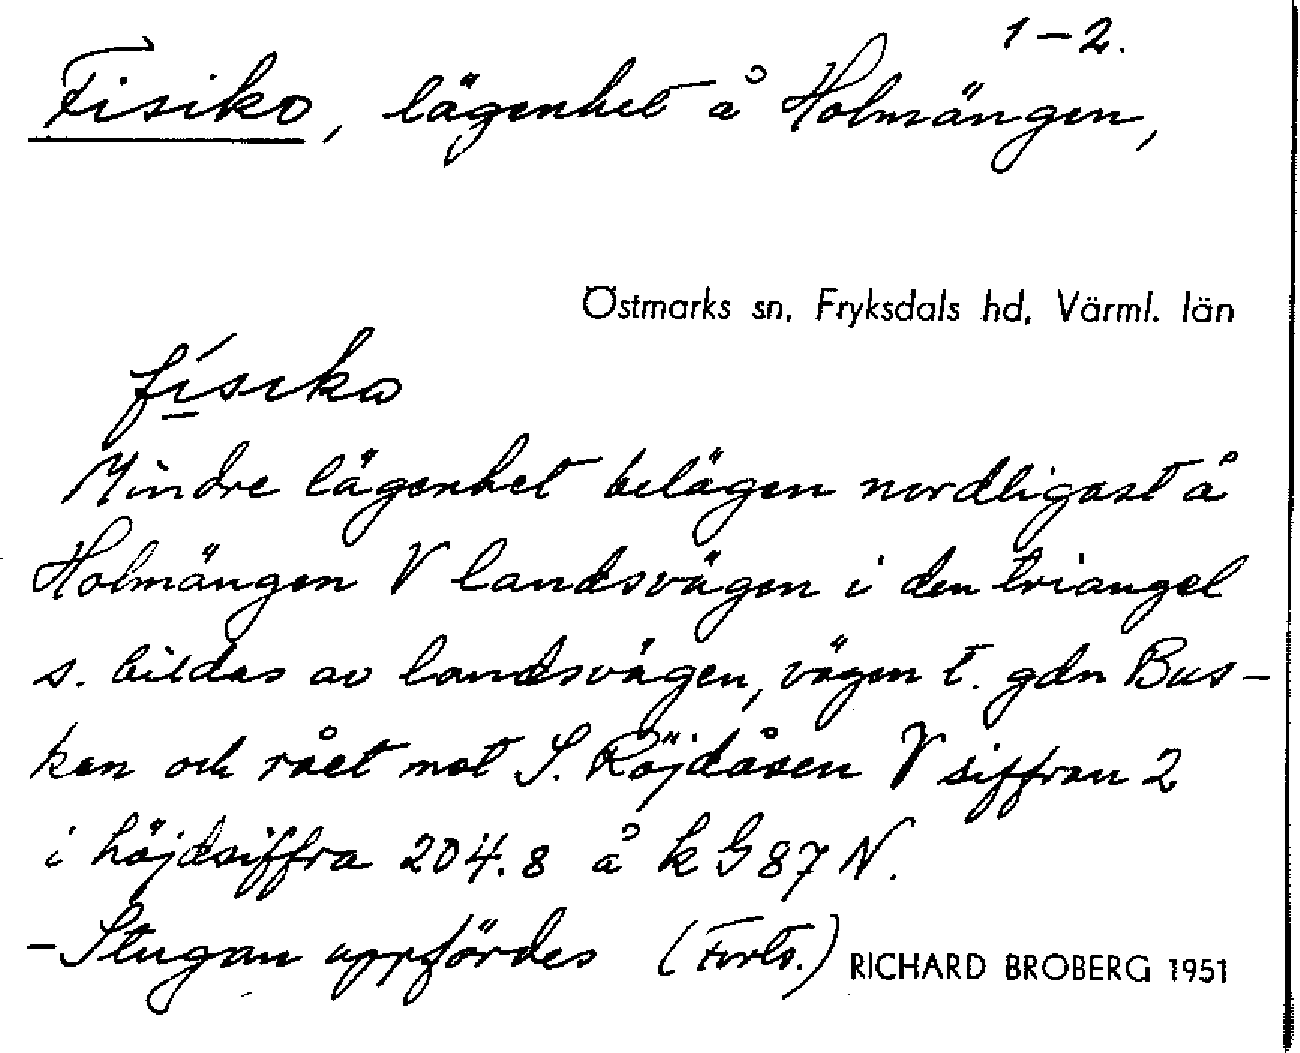 1-2.
Fisiko, lägenhet å Holmängen,
Östmarks sn, Fryksdals hd, Värml. län
físika
Mindre lägenhet belägen nordligast å
Holmängen V landsvägen i den triangel
s. bildas av landsvägen, vägen t. gdn Bus-
ken och rået mot S. Röjdåsen V siffran 2
i höjdsiffra 204.8 å k G87N.
- Stugan uppfördes (Forts.) RICHARD BROBERG 1951